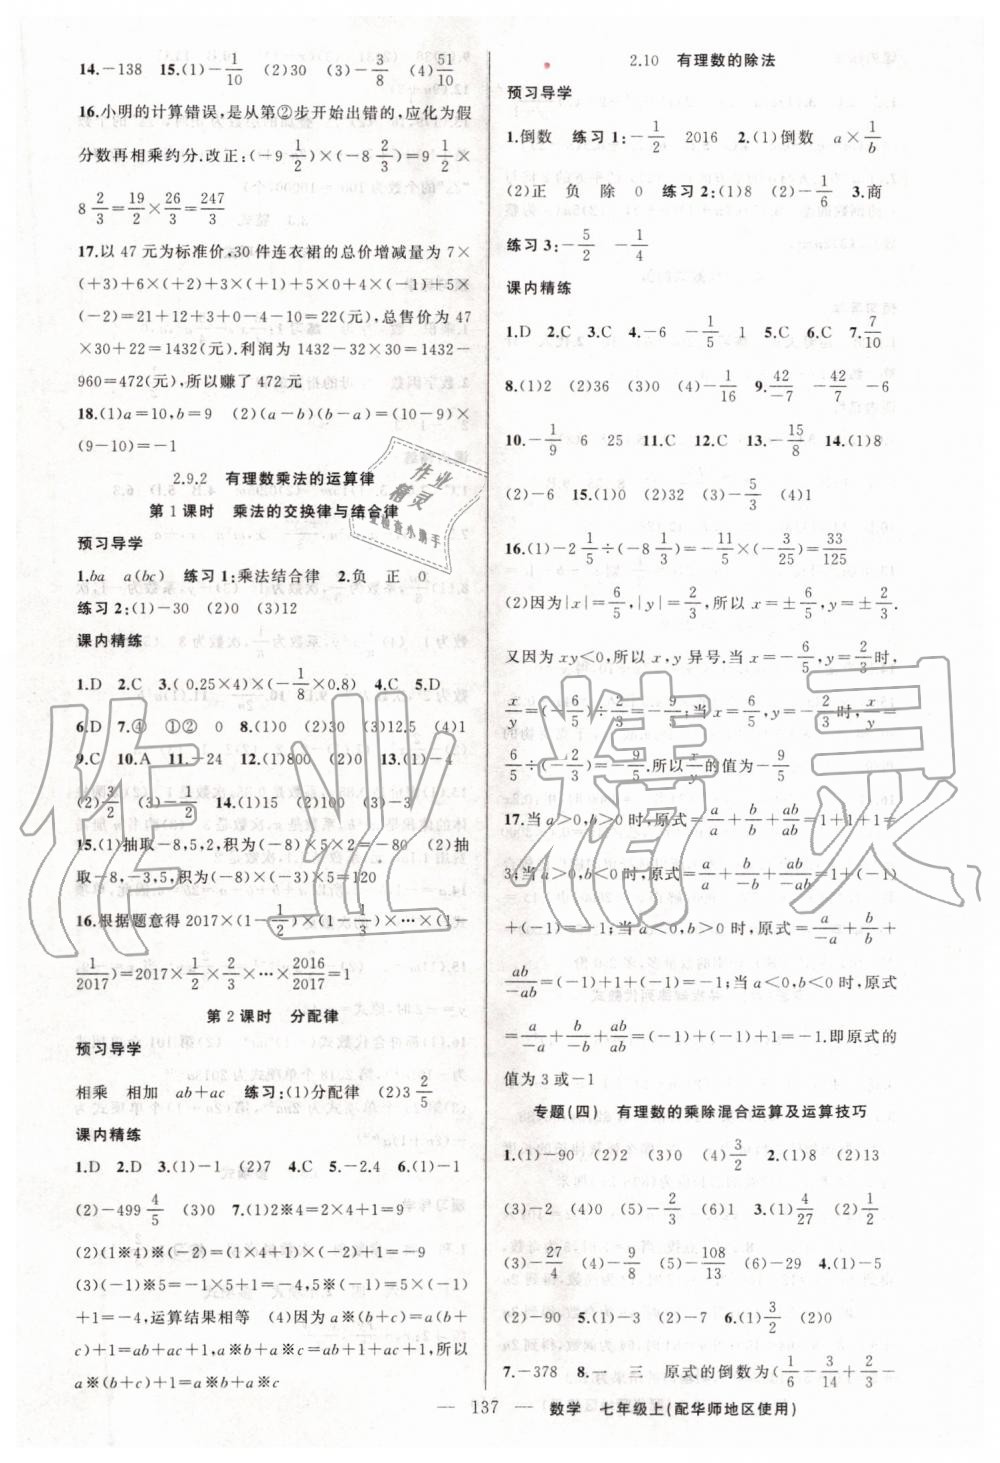 14.-138 15.(1)-1/10 (2)30 (3)-3/8 (4)51/10
16.小明的计算错误,是从第②步开始出错的,应化为假
分数再相乘约分.改正:(-9 1/2)×(-8 2/3)=9 1/2×
8 2/3=19/2×26/3=247/3
17.以 47 元为标准价,30 件连衣裙的总价增减量为 7×
(+3)+6×(+2)+3×(+1)+5×0+4×(-1)+5×
(-2)=21+12+3+0-4-10=22(元),总售价为 47
×30+22=1432(元).利润为 1432-32×30=1432-
960=472(元),所以赚了 472 元
18.(1)a=10,b=9 (2)(a-b)(b-a)=(10-9)×
(9-10)=-1
2.9.2 有理数乘法的运算律
第 1 课时 乘法的交换律与结合律
预习导学
1.ba a(bc) 练习 1:乘法结合律 2.负 正 0
练习 2:(1)-30 (2)0 (3)12
课内精练
1.D 2.C 3.(0.25×4)×(-1/8×0.8) 4.C 5.D
6.D 7.④ ①② 0 8.(1)0 (2)30 (3)12.5 (4)1
9.C 10.A 11.-24 12.(1)800 (2)0 13.(1)-4
(2)3/2 (3)-3/2 14.(1)15 (2)100 (3)-3
15.(1)抽取-8,5,2,积为(-8)×5×2=-80 (2)抽
取-8,-3,5,积为(-8)×(-3)×5=120
16.根据题意得 2017×(1-1/2)×(1-1/3)×…×(1-
1/2017)=2017×1/2×2/3×…×2016/2017=1
第 2 课时 分配律
预习导学
相乘 相加 ab+ac 练习:(1)分配律 (2)3 2/5
课内精练
1.D 2.D 3.(1)-1 (2)7 4.C 5.-2.4 6.(1)-1
(2)-499 4/5 (3)0 7.(1)2※4=2×4+1=9
(2)(1※4)※(-2)=(1×4+1)×(-2)+1=-9
(3)(-1)※5=-1×5+1=-4,5※(-1)=5×(-
1)+1=-4,运算结果相等 (4)因为 a※(b+c)=a(b+
c)+1=ab+ac+1,a※b+a※c=ab+1+ac+1.所以
a※(b+c)+1=a※b+a※c
2.10 有理数的除法
预习导学
1.倒数 练习 1:-1/2 2016 2.(1)倒数 a×1/b
(2)正 负 除 0 练习 2:(1)8 (2)-1/6 3.商
练习 3:-5/2 -1/4
课内精练
1.D 2.C 3.C 4.-6 -1/5 1 5.C 6.C 7.7/10
8.(1)2 (2)36 (3)0 (4)-1/16 9.42/-7 -42/7 -6
10.-1/9 6 25 11.C 12.C 13.-15/8 14.(1)8
(2)-6 15.(1)2 (2)-1
16.(1)-2 1/5÷(-8 1/3)=-11/5×(-3/25)=33/125
(2)因为|x|=6/5,|y|=2/3,所以 x=±6/5,y=±2/3.
又因为 xy<0,所以 x,y 异号.当 x=-6/5,y=2/3时,
x/y=(-6/5)÷2/3=-9/5;当 x=6/5,y=-2/3时,x/y=
6/5÷(-2/3)=-9/5.所以x/y的值为-9/5
17.当 a>0,b>0 时,原式=a/a+b/b+ab/ab=1+1+1=
3;当 a>0,b<0 时,原式=a/a+b/-b+ab/-ab=1+(-1)
+(-1)=-1;当 a<0,b>0 时,原式=a/-a+b/b+
ab/-ab=(-1)+1+(-1)=-1;当 a<0,b<0 时,原式
=a/-a+b/-b+ab/ab=(-1)+(-1)+1=-1.即原式的
值为 3 或-1
专题(四) 有理数的乘除混合运算及运算技巧
1.(1)-90 (2)2 (3)0 (4)3/2 2.(1)8 (2)13
(3)-2 (4)0 (5)-2/3 (6)1 3.(1)4/27 (2)1
(3)-27/4 (4)-3 (5)-108/13 (6)-29 4.(1)-5
(2)-90 5.(1)-3 (2)-4 6.(1)3/2 (2)0
7.-378 8.一 三 原式的倒数为(1/6-3/14+2/3-
— 137 — 数学 七年级上(配华师地区使用)
作业精灵
作业
精灵
作业检查小帮手